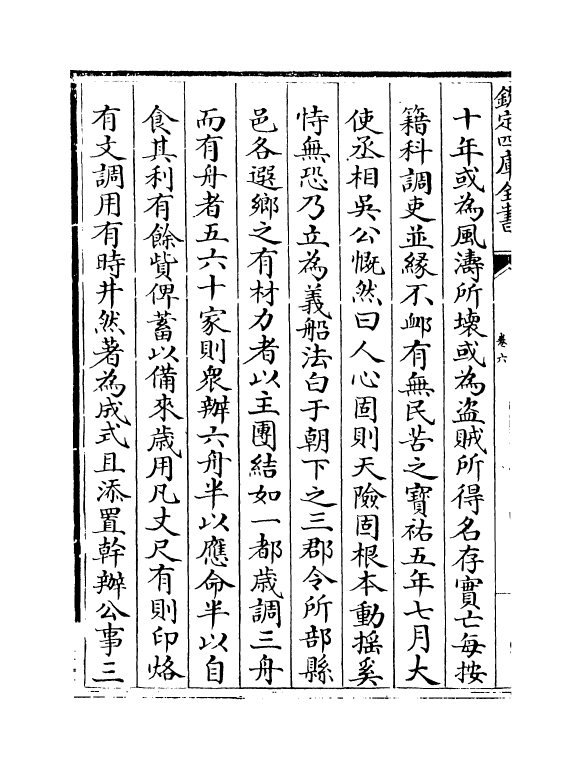 欽定四庫全書
卷六
十年或為風濤所壞或為盜賊所得名存實亡每按
籍科調吏並緣不卹有無民苦之寶祐五年七月大
使丞相吳公慨然曰人心固則天險固根本動搖奚
恃無恐乃立為義船法白于朝下之三郡令所部縣
邑各選鄉之有材力者以主團結如一都歳調三舟
而有舟者五六十家則衆辦六舟半以應命半以自
食其利有餘貲俾蓄以備來歳用凡丈尺有則印烙
有文調用有時井然著為成式且添置幹辦公事三